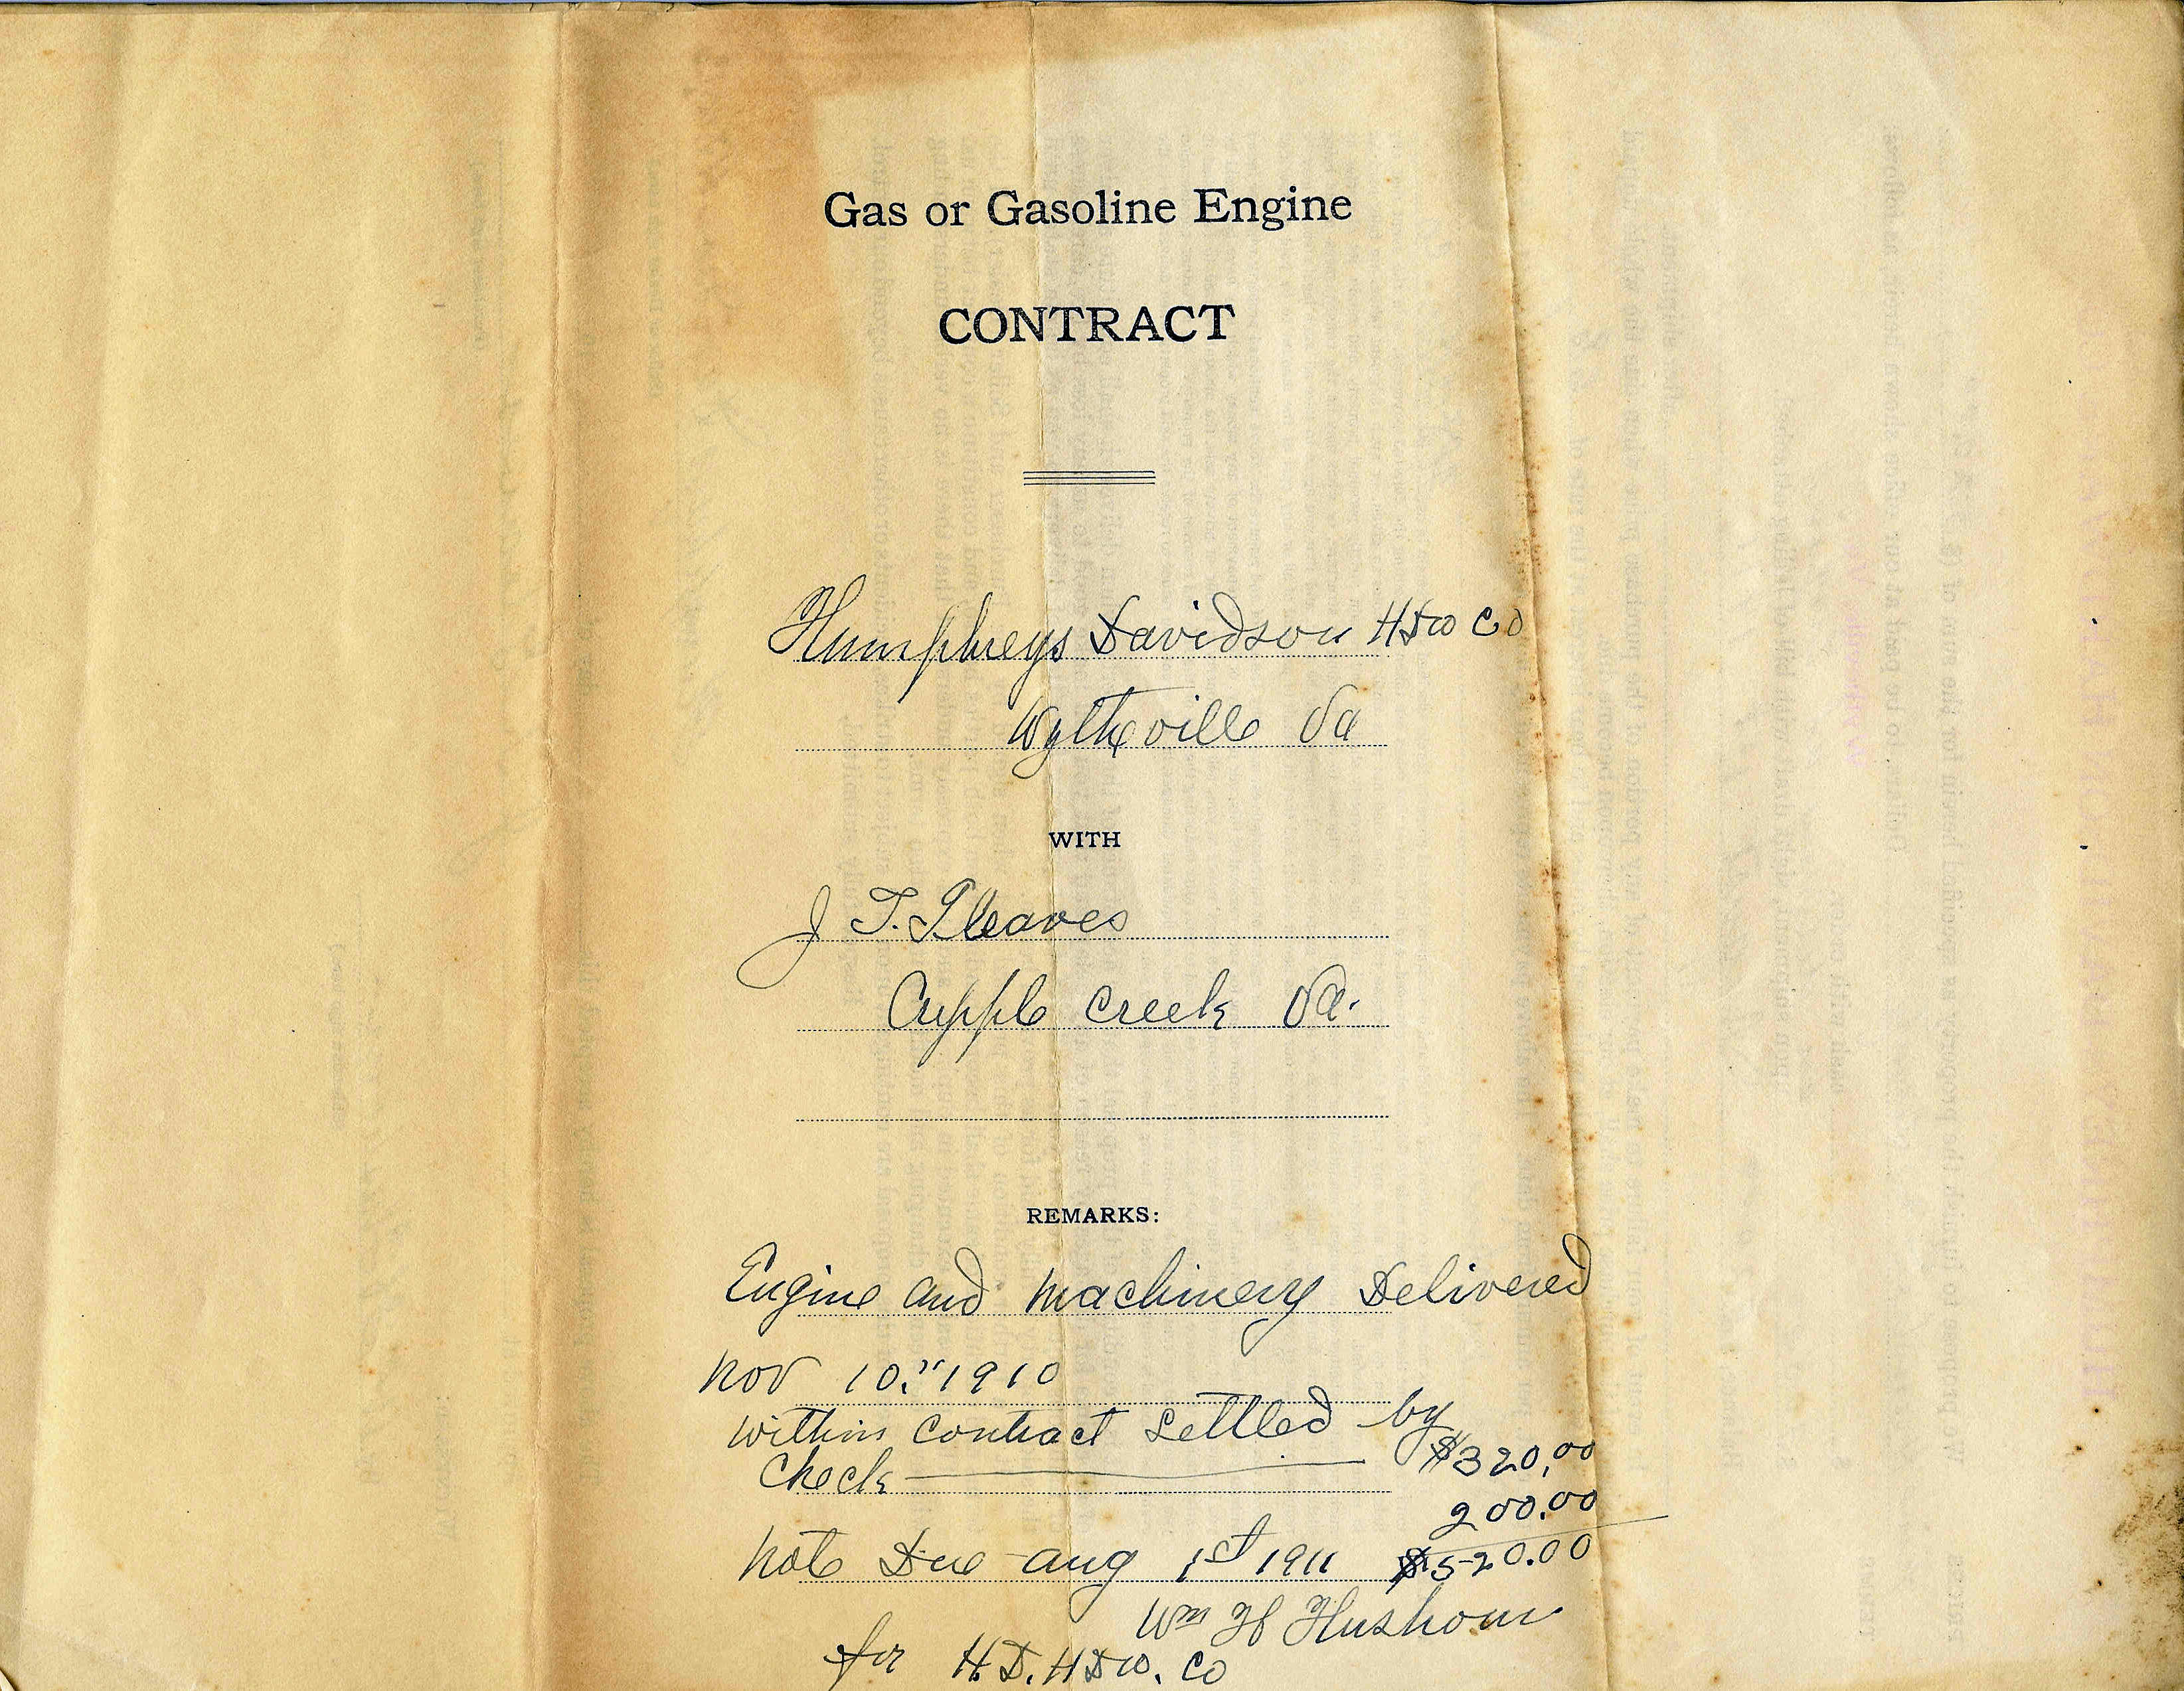 Gas or Gasoline Engine
CONTRACT
Humphreys Davidson HDW Co
Wytheville Va
WITH
J T. Cleaves
Cripple Creek Va.
REMARKS:
Engine and Machinery Delivered
Nov 10," 1910
within contract settled by
check $320.00
200.00
Note Due aug 1st 1911 $520.00
Wm H
for H.D. HDW. Co